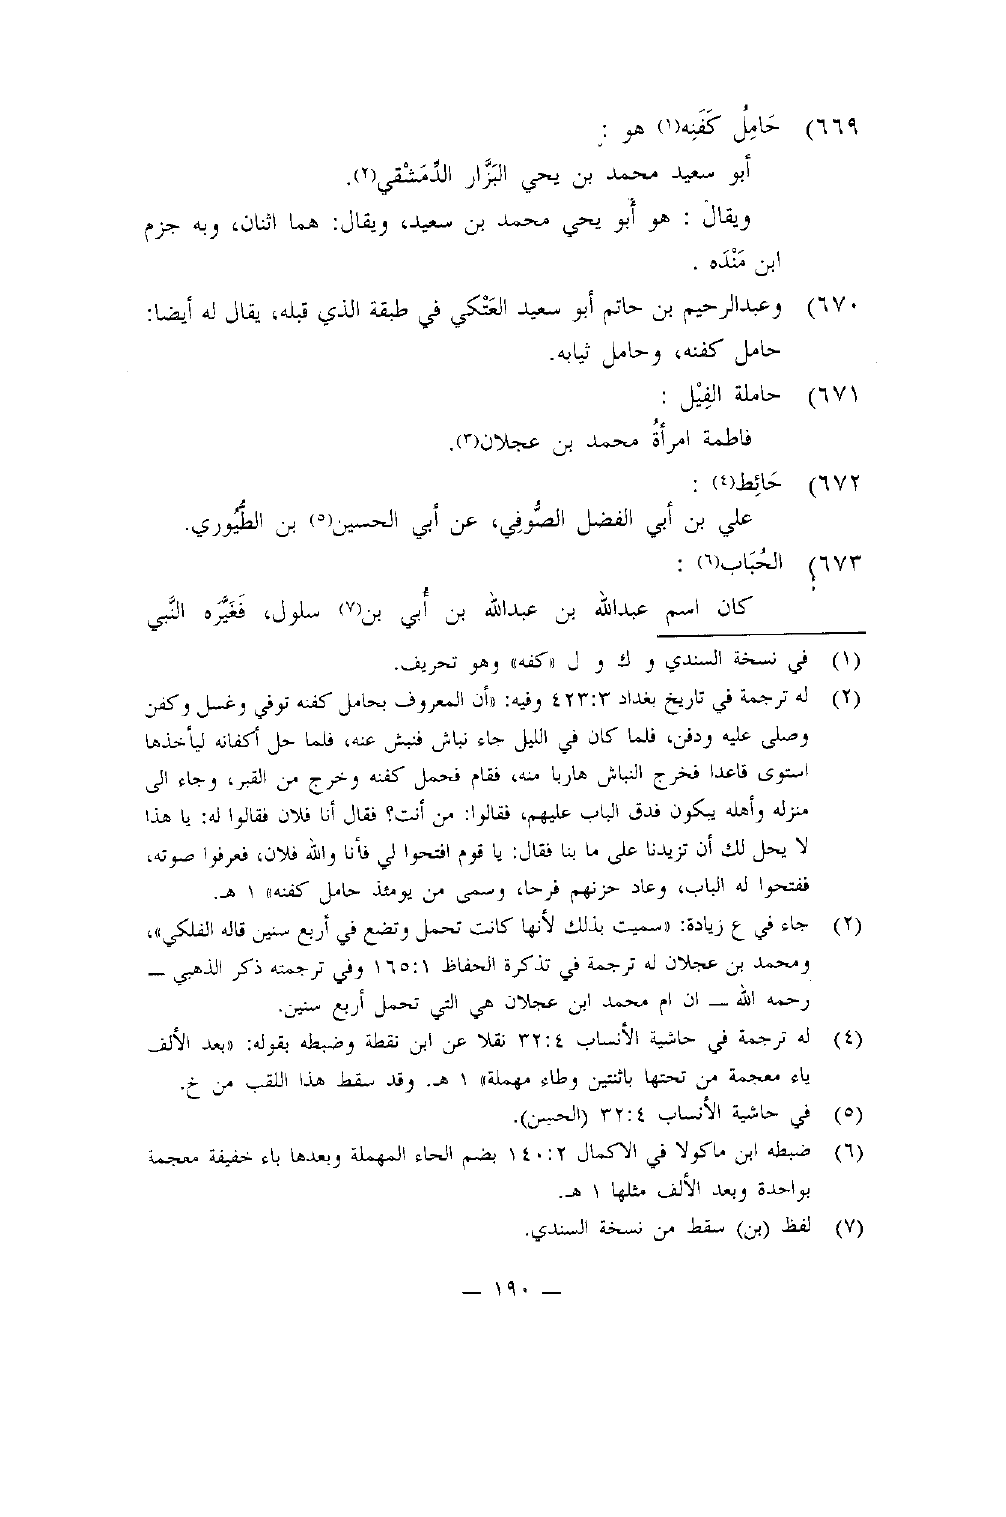 ٦٦٩) حَامِلُ كَفَنِه(١) هو :
أبو سعيد محمد بن يحي البَزَّار الدِّمَشْقي(٢).
ويقال : هو أبو يحي محمد بن سعيد، ويقال: هما اثنان، وبه جزم
ابن مَنْدَه .
٦٧٠) وعبدالرحيم بن حاتم أبو سعيد العَتْكي في طبقة الذي قبله، يقال له أيضا:
حامل كفنه، وحامل ثيابه.
٦٧١) حاملة الفِيْل :
فاطمة امرأةُ محمد بن عجلان(٣).
٦٧٢) حَائِط(٤) :
علي بن أبي الفضل الصُّوفِي، عن أبي الحسين(٥) بن الطُّيُوري.
٦٧٣) الحُبَاب(٦) :
كان اسم عبدالله بن عبدالله بن أُبي بن(٧) سلول، فَغَيَّره النَّبي
(١) في نسخة السندي و ك و ل «كفه» وهو تحريف.
(٢) له ترجمة في تاريخ بغداد ٤٢٣:٣ وفيه: «أن المعروف بحامل كفنه توفي وغسل وكفن
وصلى عليه ودفن، فلما كان في الليل جاء نباش فنبش عنه، فلما حل أكفانه ليأخذها
استوى قاعدا فخرج النباش هاربا منه، فقام فحمل كفنه وخرج من القبر، وجاء الى
منزله وأهله يبكون فدق الباب عليهم، فقالوا: من أنت؟ فقال أنا فلان فقالوا له: يا هذا
لا يحل لك أن تزيدنا على ما بنا فقال: يا قوم افتحوا لي فأنا والله فلان، فعرفوا صوته،
ففتحوا له الباب، وعاد حزنهم فرحا، وسمى من يومئذ حامل كفنه» ١ هـ.
(٢) جاء في ع زيادة: «سميت بذلك لأنها كانت تحمل وتضع في أربع سنين قاله الفلكي»،
ومحمد بن عجلان له ترجمة في تذكرة الحفاظ ١٦٥:١ وفي ترجمته ذكر الذهبي —
رحمه الله — ان ام محمد ابن عجلان هي التي تحمل أربع سنين.
(٤) له ترجمة في حاشية الأنساب ٣٢:٤ نقلا عن ابن نقطة وضبطه بقوله: «بعد الألف
ياء معجمة من تحتها باثنتين وطاء مهملة» ١ هـ. وقد سقط هذا اللقب من خ.
(٥) في حاشية الأنساب ٣٢:٤ (الحسن).
(٦) ضبطه ابن ماكولا في الاكمال ١٤٠:٢ بضم الحاء المهملة وبعدها باء خفيفة معجمة
بواحدة وبعد الألف مثلها ١ هـ.
(٧) لفظ (بن) سقط من نسخة السندي.
— ١٩٠ —